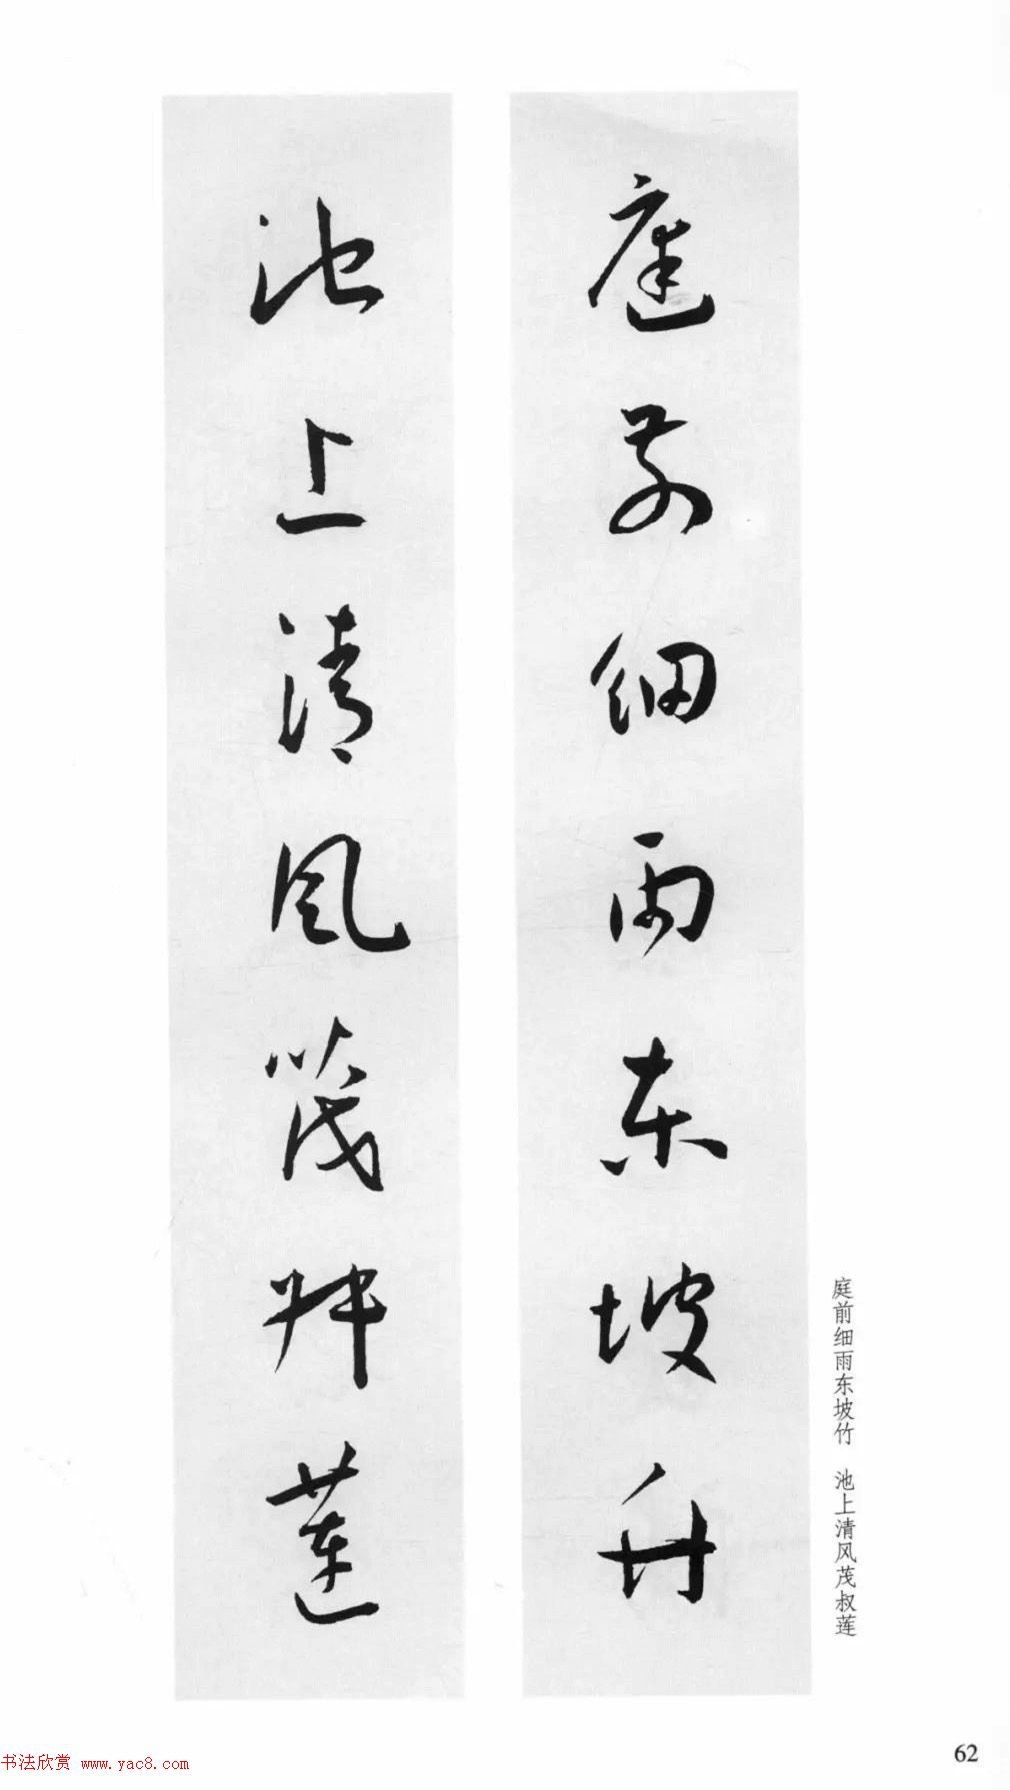 庭前細雨东坡竹
池上清风茂叔蓮
庭前细雨东坡竹 池上清风茂叔莲
62
书法欣赏 www.yac8.com